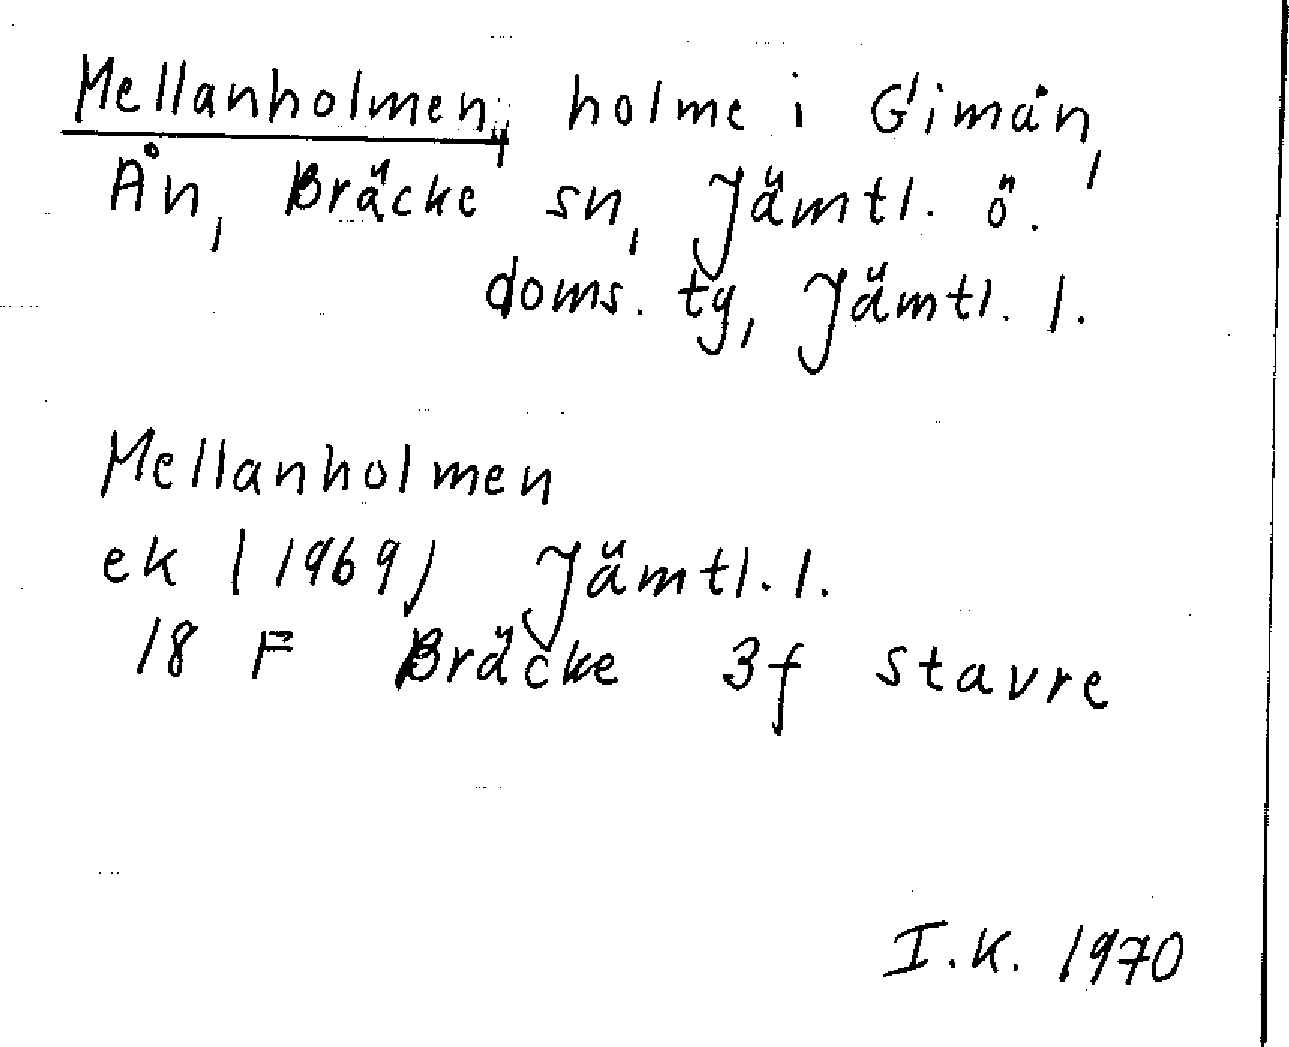 Mellanholmen, holme i Gimån,
Ån, Bräcke sn, Jämtl. ö.
doms. tg, Jämtl. l.
Mellanholmen
ek (1969) Jämtl. l.
18 F Bräcke 3f Stavre
I.K. 1970